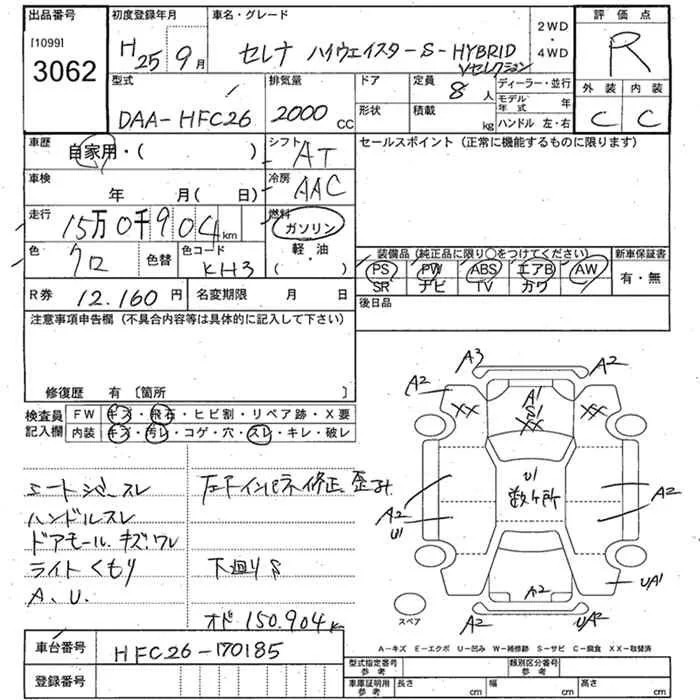 出品番号 初度登録年月 車名・グレード 2WD・4WD 評価点
[1099]
3062
H25 9月 セレナ ハイウェイスター-S-HYBRID R
Vセレクション
型式 排気量 ドア 定員 8人 ディーラー・並行 外装 内装
DAA-HFC26 2000cc 形状 積載 kg モデル年式 年 C C
ハンドル 左・右
車歴 自家用・( ) シフト AT セールスポイント (正常に機能するものに限ります)
車検 年 月( 日) 冷房 AAC
走行 15万0千904km 燃料 ガソリン
軽・油
( )
色 クロ 色替 色コード KH3
装備品 (純正品に限り○をつけてください) 新車保証書
PS PW ABS エアB AW 有・無
SR ナビ TV カワ
R券 12.160円 名変期限 月 日 後日品
注意事項申告欄 (不具合内容等は具体的に記入して下さい)
修復歴 有 〔箇所 〕
検査員記入欄 FW キズ・飛石・ヒビ割・リペア跡・X要
内装 キズ・汚レ・コゲ・穴・スレ・キレ・破レ
シートシワ.スレ
ハンドルスレ
ドアモール.キズ.ワレ
ライトくもり
A.U.
左下インパネ修正.歪み.
下廻りS
オド150.904K
A3
A2
A2
A1
S1
XX
XX
XX
U1
数ヶ所
A2
A2
U1
A2
UA1
A2
UA2
スペア
A-キズ E-エクボ U-凹み W-補修跡 S-サビ C-腐食 XX-取替済
車台番号 HFC26-170185
登録番号
型式指定番号参考 類別区分番号参考
車庫証明用参考 長さ cm 幅 cm 高さ cm